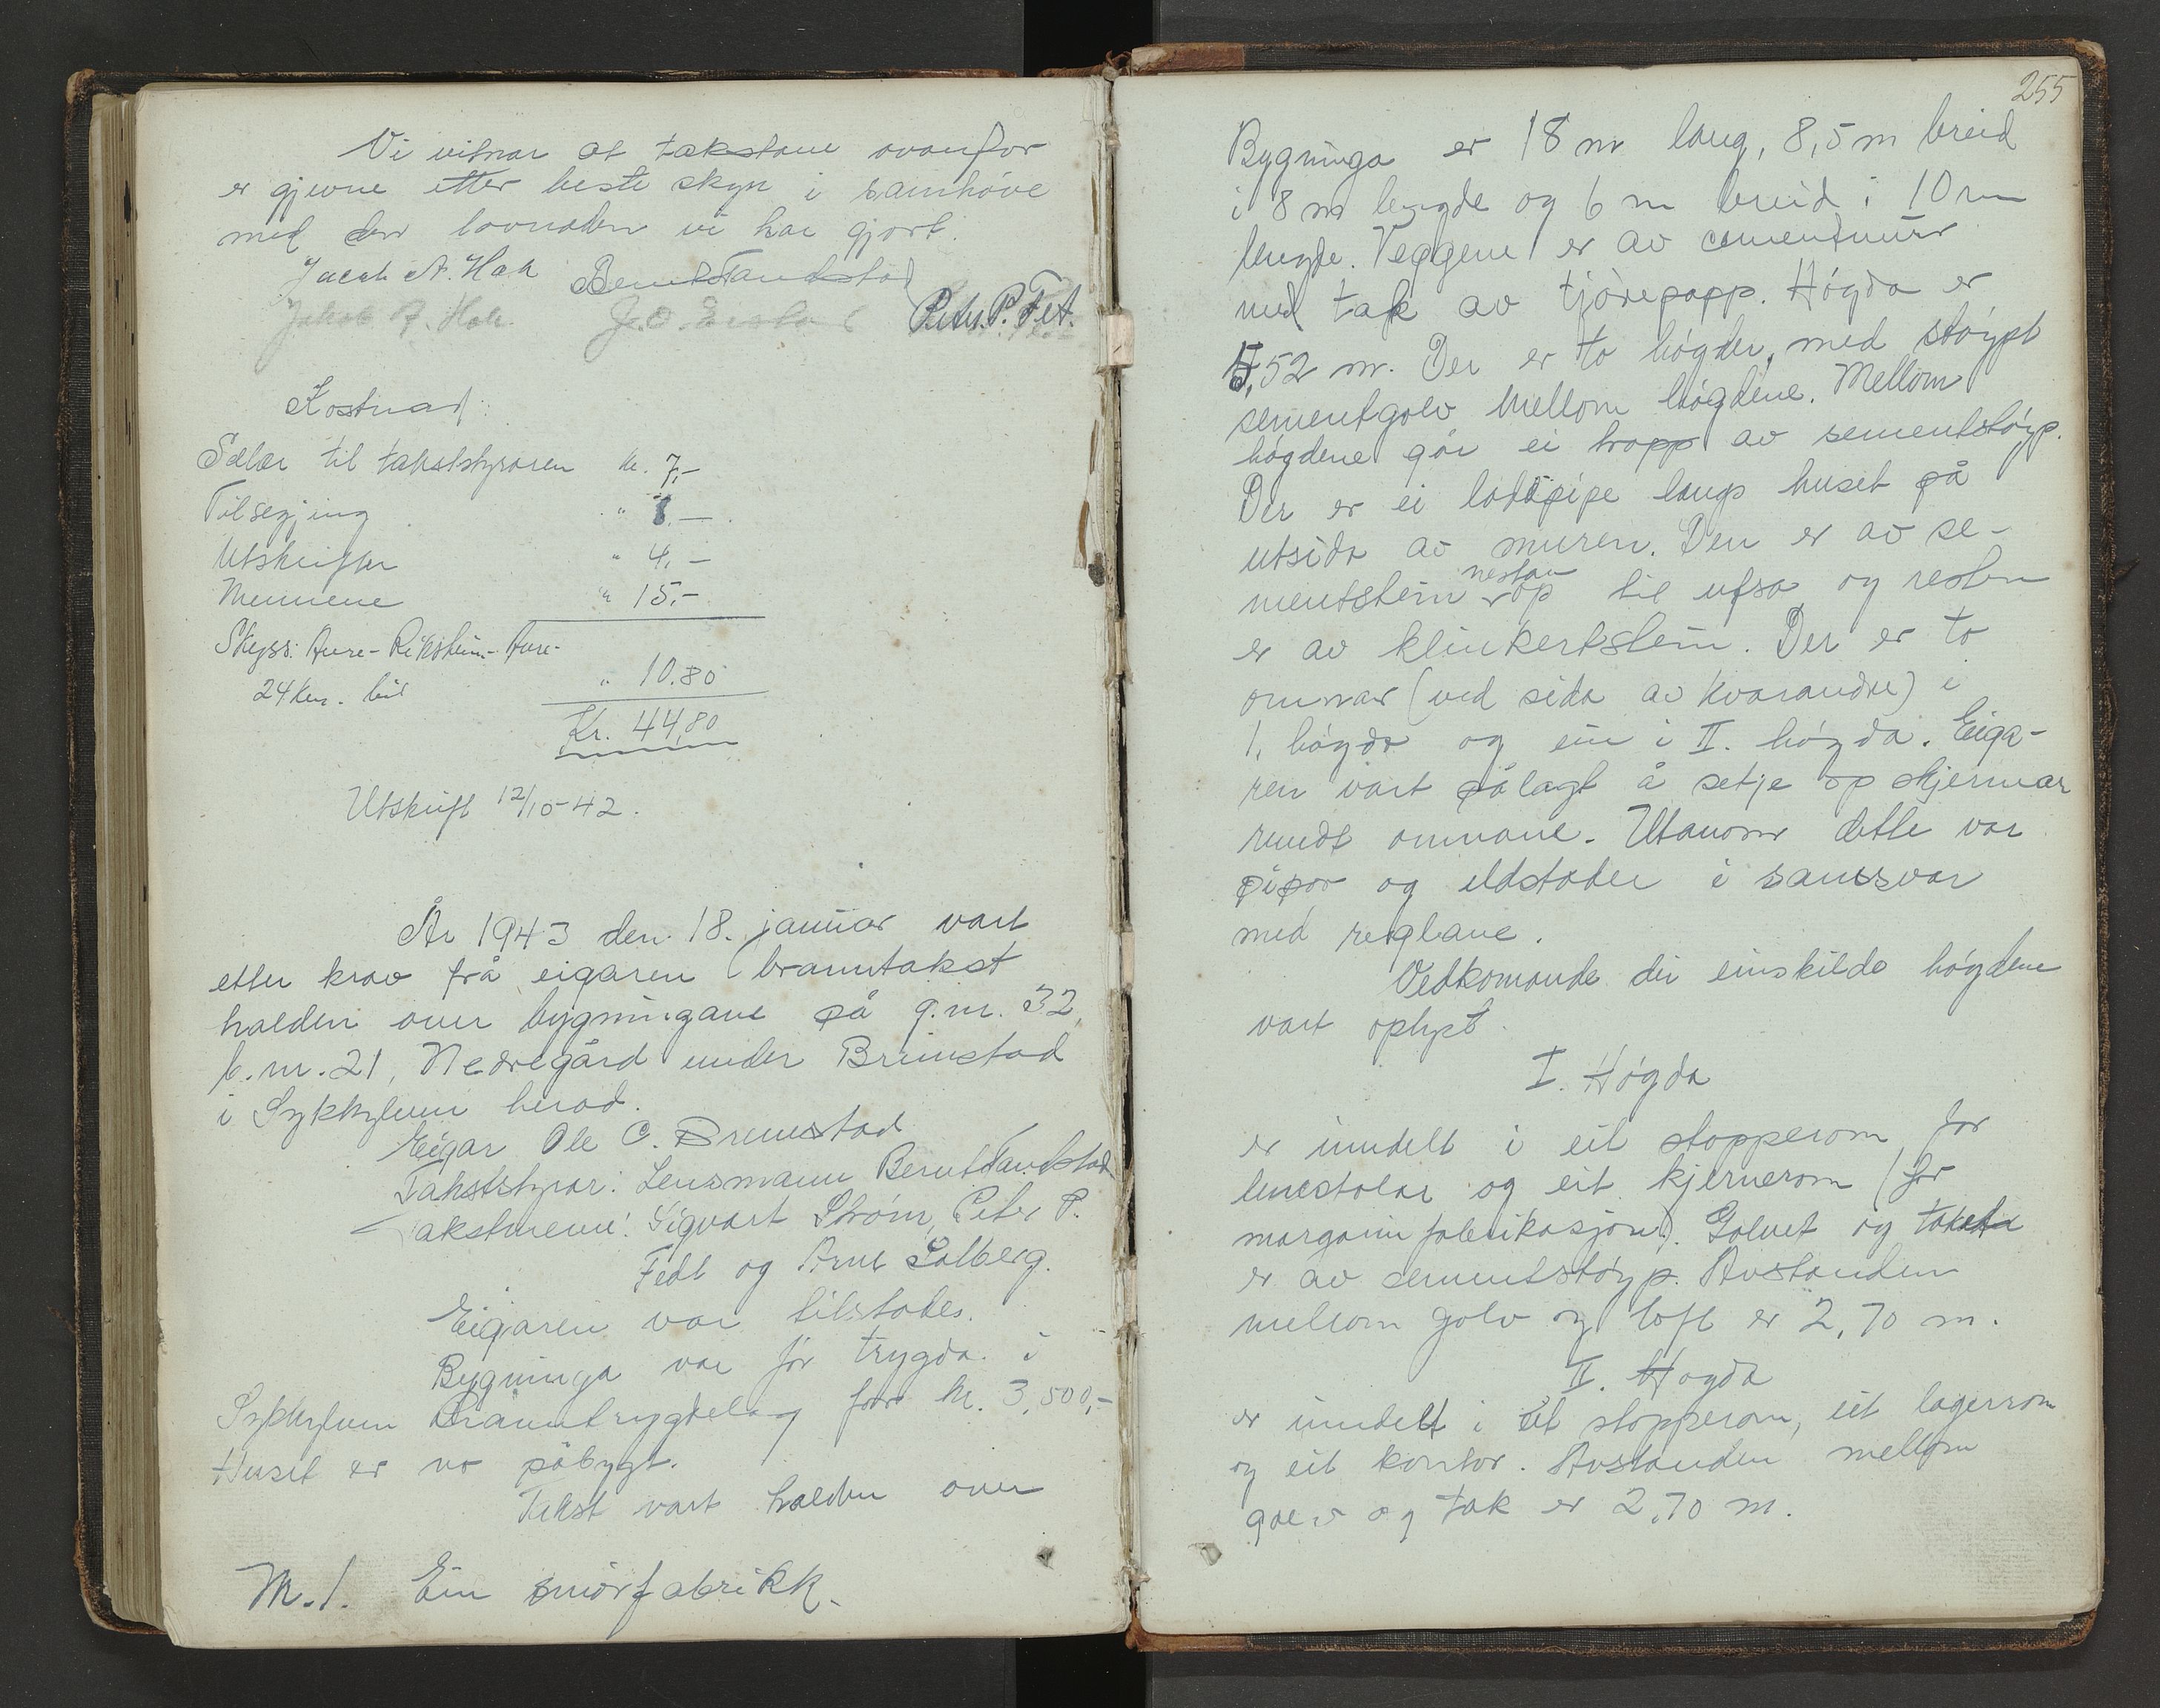 Vi vitnar at takstane ovanfor
er gjevne etter beste skyn i samhøve
med den lovnaden vi har gjort.
Jacob A. Hah Bernt Tandstad
Jakob A. Peter P. Fet.
Kostnad:
Salær til takststyraren kr. 7,-
Tilsegjing " 8,-
Utskrifter " 4,-
Mennene " 15,-
Skyss: Aure- Riksheim- Aure-
24 km. bil " 10.80
Kr. 44,80
Utskrift 12/10-42.
År 1943 den 18. januar vart
etter krav frå eigaren branntakst
halden over bygningane på g.nr. 32,
b.nr. 21, Nedregård under Brunstad
i Sykkylven herad.
Eigar Ole C. Brunstad
Takststyrar: Lensmann Bernt Tandstad
Takstmenn: Sigvart Strøm, Peter P.
Fedt og Arne Solberg.
Eigaren var tilstades.
Bygninga var før trygda i
Sykkylven Branntrygdelag for kr. 3,500,-
Huset er no påbygt.
Takst vart halden over
M.1. Ein smørfabrikk.
255
Bygninga er 18 m lang, 8,5 m breid
i 8 m lengde og 6 m breid i 10 m
lengde. Veggene er av cementmur
med tak av tjørepapp. Høgda er
5,52 m. Der er to høgder, med støypt
sementgolv mellom høgdene. Mellom
høgdene går ei tropp av sementstøyp.
Der er ei pipe langs huset på
utsida av muren. Den er av se-
mentstein nestan op til ufsa og resten
er av klinkertstein. Der er to
omnar (ved sida av kvarandre) i
1. høgda og ein i II. høgda. Eiga-
ren vart pålagt å setje op skjermar
rundt omnane. Utanom dette var
pipor og eldstader i samsvar
med reglane.
Vedkomande dei einskilde høgdene
vart oplyst.
I. Høgda
er inndelt i eit stopperom for
lenestolar og eit kjernerom (for
margarinfabrikasjon). Golvet og taket
er av sementstøyp. Avstanden
mellom golv og loft er 2,70 m.
II. Høgda
er inndelt i eit stopperom, eit lagerrom
og eit kontor. Avstanden mellom
golv og tak er 2,70 m.